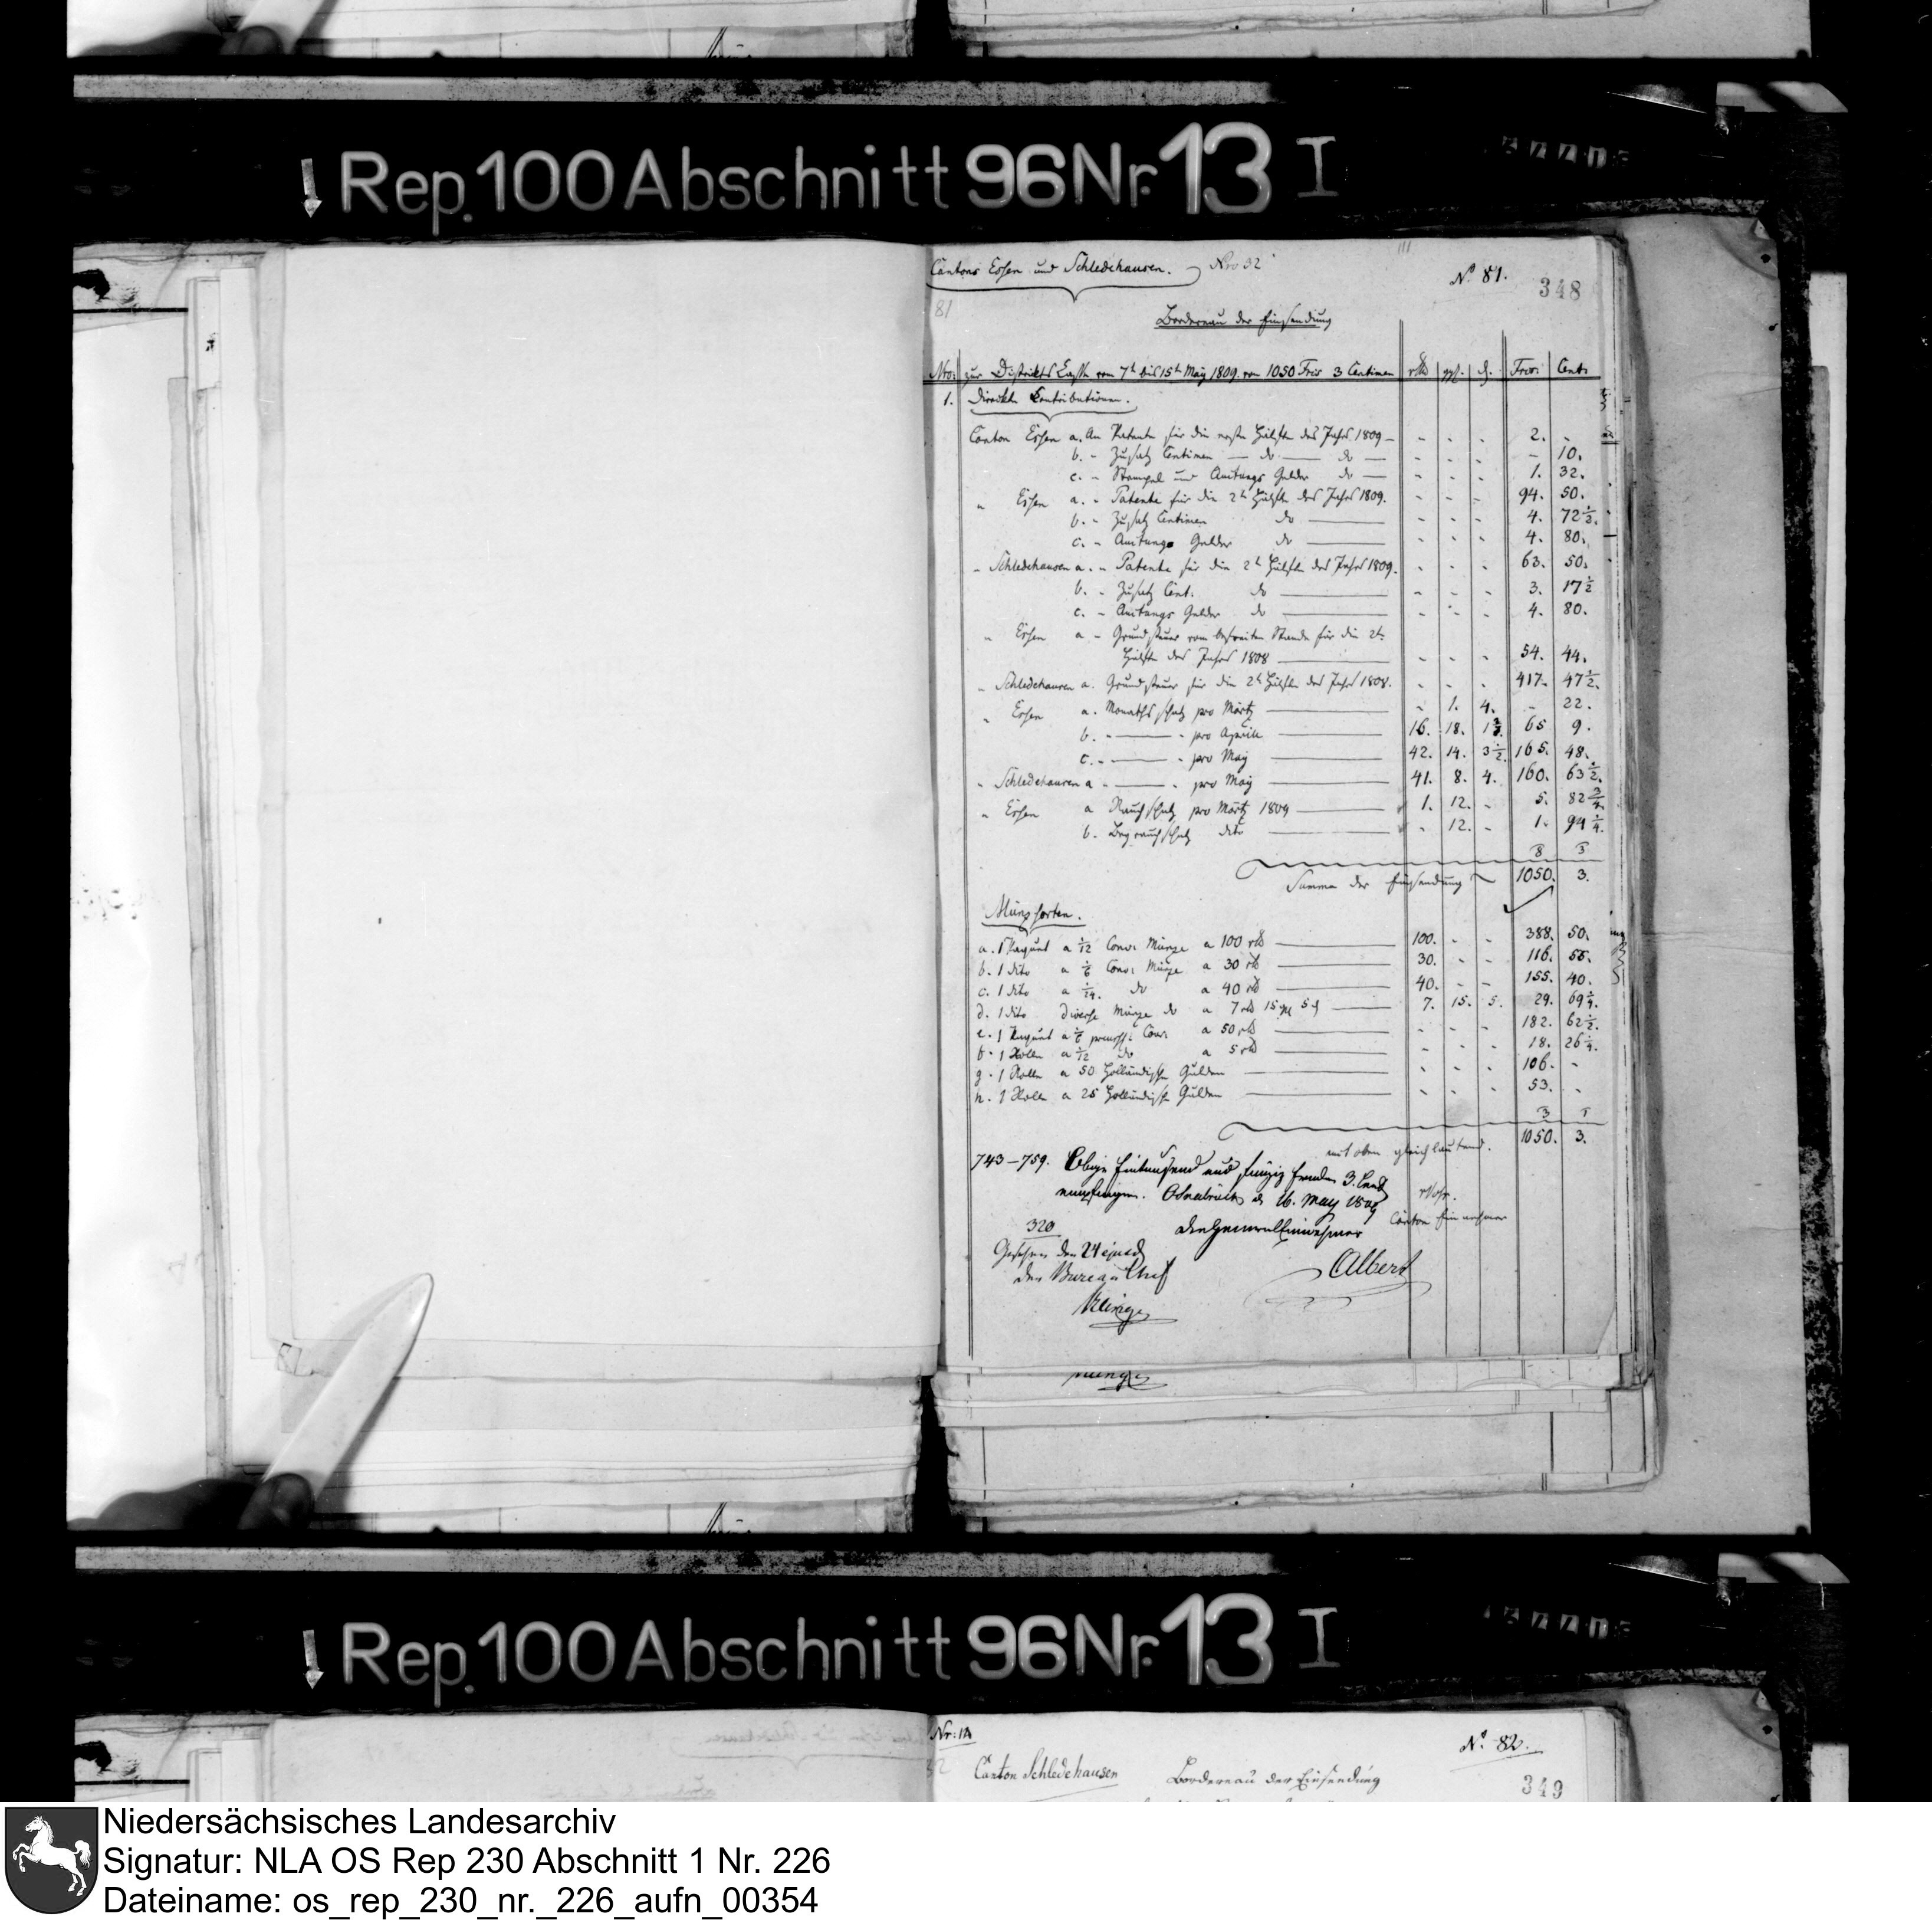 Rep. 100 Abschnitt 96 Nr. 13 I
Cantons Essen und Schledehausen. Nro 32
N° 81.
348
81
Bordereau der Einsendung
Nro: zur Distrikts Casse vom 7t bis 15t May 1809 von 1050 Frcs 3 Centimen Frcs: Cent:
1. Directe Contributionen.
Canton Essen a. An Patente für die erste Hälfte des Jahrs 1809 - - . . 2. -
b. - Zusatz Centimen — do — do — - . . - 10.
c. - Stempel und Quitungs Gelder do — - . . 1. 32.
" Essen a. - Patente für die 2te Hälfte des Jahrs 1809. - - - 94. 50.
b. - Zusatz Centimen do — - . . 4. 72 1/2.
c. - Quitungs Gelder do — - . . 4. 80.
- Schledehausen a. - Patente für die 2te Hälfte des Jahrs 1809. - . . 63. 50.
b. - Zusatz Cent. do — - - - 3. 17 1/2
c. - Quitungs Gelder do — - - - 4. 80.
" Essen a - Grundsteuer vom befreiten Stande für die 2te
Hälfte des Jahrs 1808 — - - - 54. 44.
" Schledehausen a. Grundsteuer für die 2te Hälfte des Jahrs 1808. - . . 417. 47 1/2.
" Essen a. Monathschatz pro Märtz — - 1. 4. - 22.
b. - — - pro Aprill — 16. 18. 65 9.
c. - — - pro May — 42. 14. 3 1/2. 165. 48.
- Schledehausen a - — - pro May — 41. 8. 4. 160. 63 1/2.
" Essen a Rauchschatz pro Märtz 1809 — 1. 12. - 5. 82 3/4.
b. dito — - 12. - 1. 94 1/4.
8 3
Summa der Einsendung 1050. 3.
Münzsorten.
a. 1 Paquet a 1/12 Conv: Münze a 100 rth — 100. - - 388. 50.
b. 1 dito a 1/6 Conv: Münze a 30 rth — 30. - - 116. 55.
c. 1 dito a 1/24. do a 40 rth — 40. - - 155. 40.
d. 1 dito diverse Münze do a 7 rth 15 5 — 7. 15. 5. 29. 69 1/4.
e. 1 Paquet a 1/6 preuss: Cour: a 50 rth — - - - 182. 62 1/2.
f. 1 Rolle a 1/12 do a 5 rth — - - - 18. 26 1/4.
g. 1 Rolle a 50 Holländische Gulden — - . . 106. -
h. 1 Rolle a 25 Holländische Gulden — - . . 53. -
3 1
1050. 3.
mit oben gleichlautend.
743-759. Obige Eintausend und funfzig Franken 3. Cent
empfangen. Osnabrück d. 16. May 1809
Canton Einnehmer
Der General Einnehmer
Albers
320
Gesehen den 24 ejusd
Der Bureau Chef
Rep. 100 Abschnitt 96 Nr. 13 I
Nr: 12
N° 82.
Canton Schledehausen Bordereau der Einsendung
349
Niedersächsisches Landesarchiv
Signatur: NLA OS Rep 230 Abschnitt 1 Nr. 226
Dateiname: os_rep_230_nr._226_aufn_00354